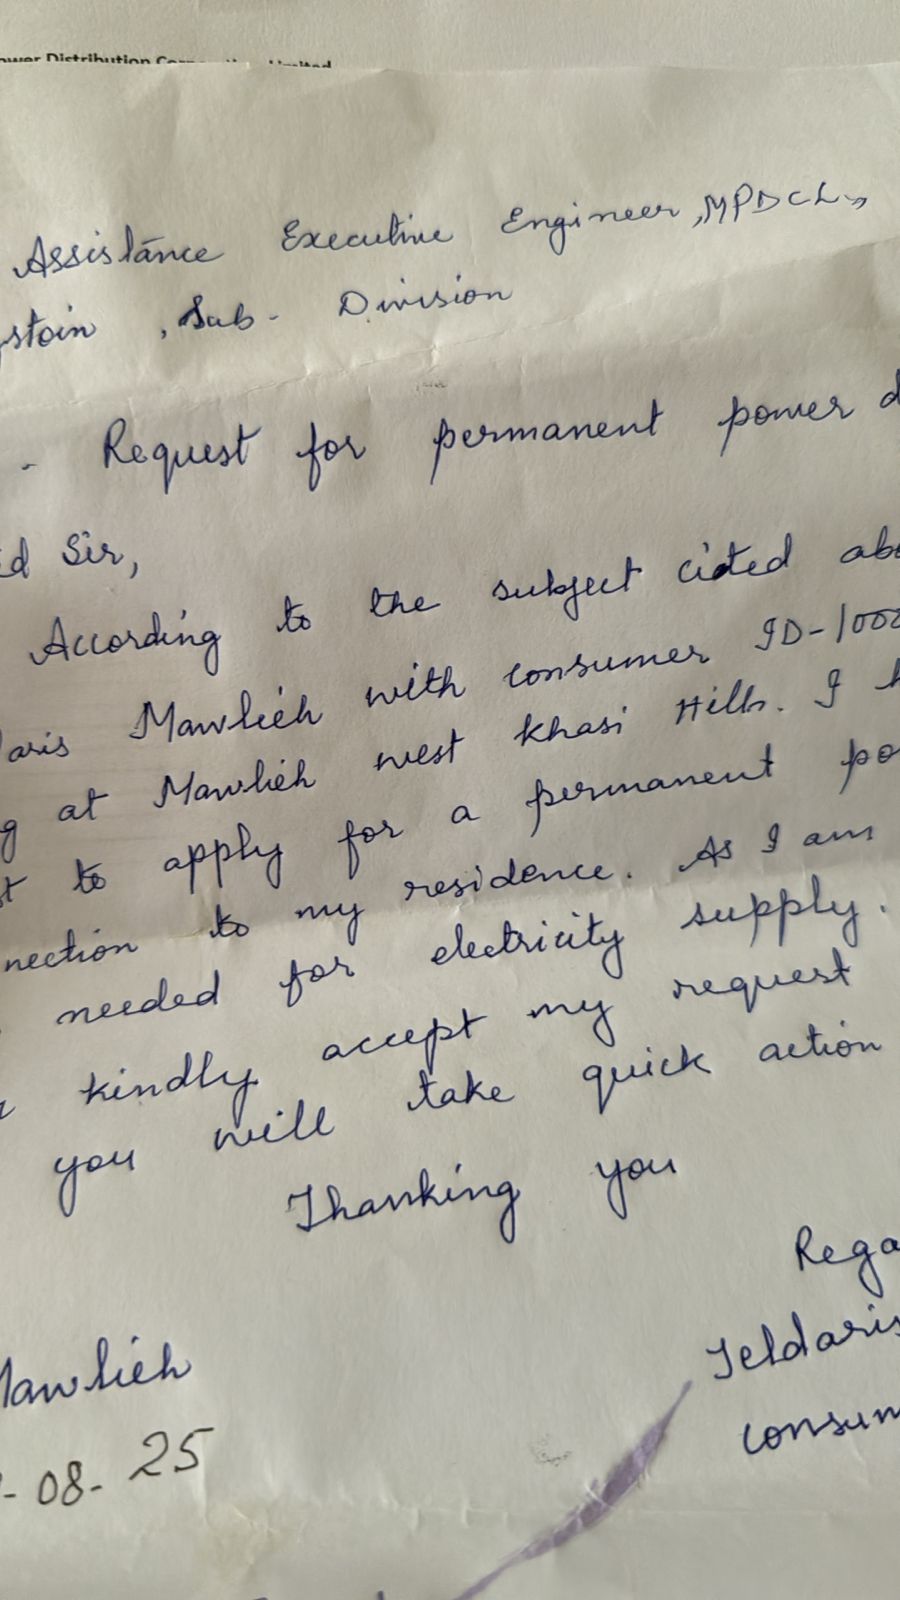 ower Distribution Corporation Limited
Assistance Executive Engineer, MPDCL,,
ystoin, Sub- Division
- Request for permanent power d
ed Sir,
According to the subject cited abo
daris Mawlieh with consumer ID-1000
g at Mawlieh west Khasi Hills. I h
st to apply for a permanent po
nection to my residence. As I am
needed for electricity supply.
kindly accept my request
you will take quick action
Thanking you
Rega
Jeldaris
consum
Mawlieh
-08-25